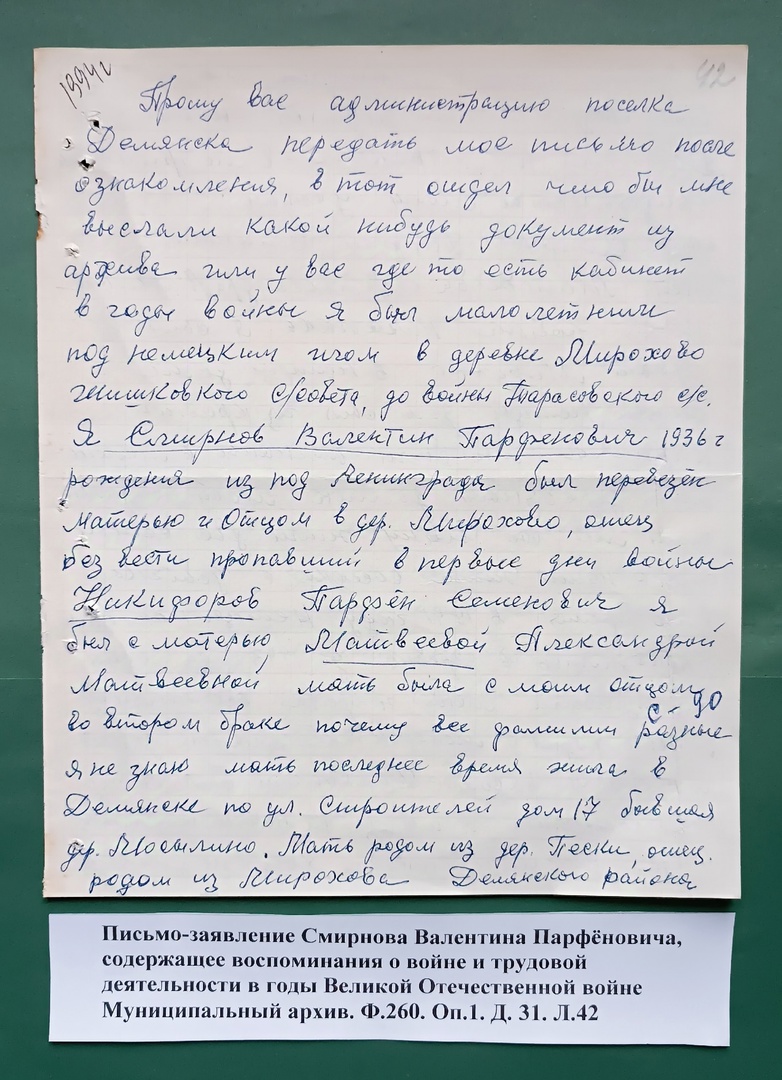 1994 г
42
Прошу вас администрацию поселка
Демянска передать мое письмо после
ознакомления, в тот отдел что бы мне
выслали какой нибудь документ из
архива или у вас где то есть кабинет
в годы войны я был малолетним
под немецким игом в деревне Мирохово
Жишковкого с/совета, до войны Тарасовского с/с.
Я Смирнов Валентин Парфенович 1936 г
рождения из под Ленинграда был перевезён
матерью и Отцом в дер. Мирохово, отец
без вести пропавший в первые дни войны
Никифоров Парфён Семенович я
был с матерью Матвеевой Александрой
Матвеевной мать была с моим отцом
во втором браке почему все фамилии разные
с-90
я не знаю мать последнее время жила в
Демянске по ул. Строителей дом 17 бывшая
др. Мосылино. Мать родом из дер. Пески, отец.
родом из Мирохова Демянского района
Письмо-заявление Смирнова Валентина Парфёновича,
содержащее воспоминания о войне и трудовой
деятельности в годы Великой Отечественной войне
Муниципальный архив. Ф.260. Оп.1. Д. 31. Л.42